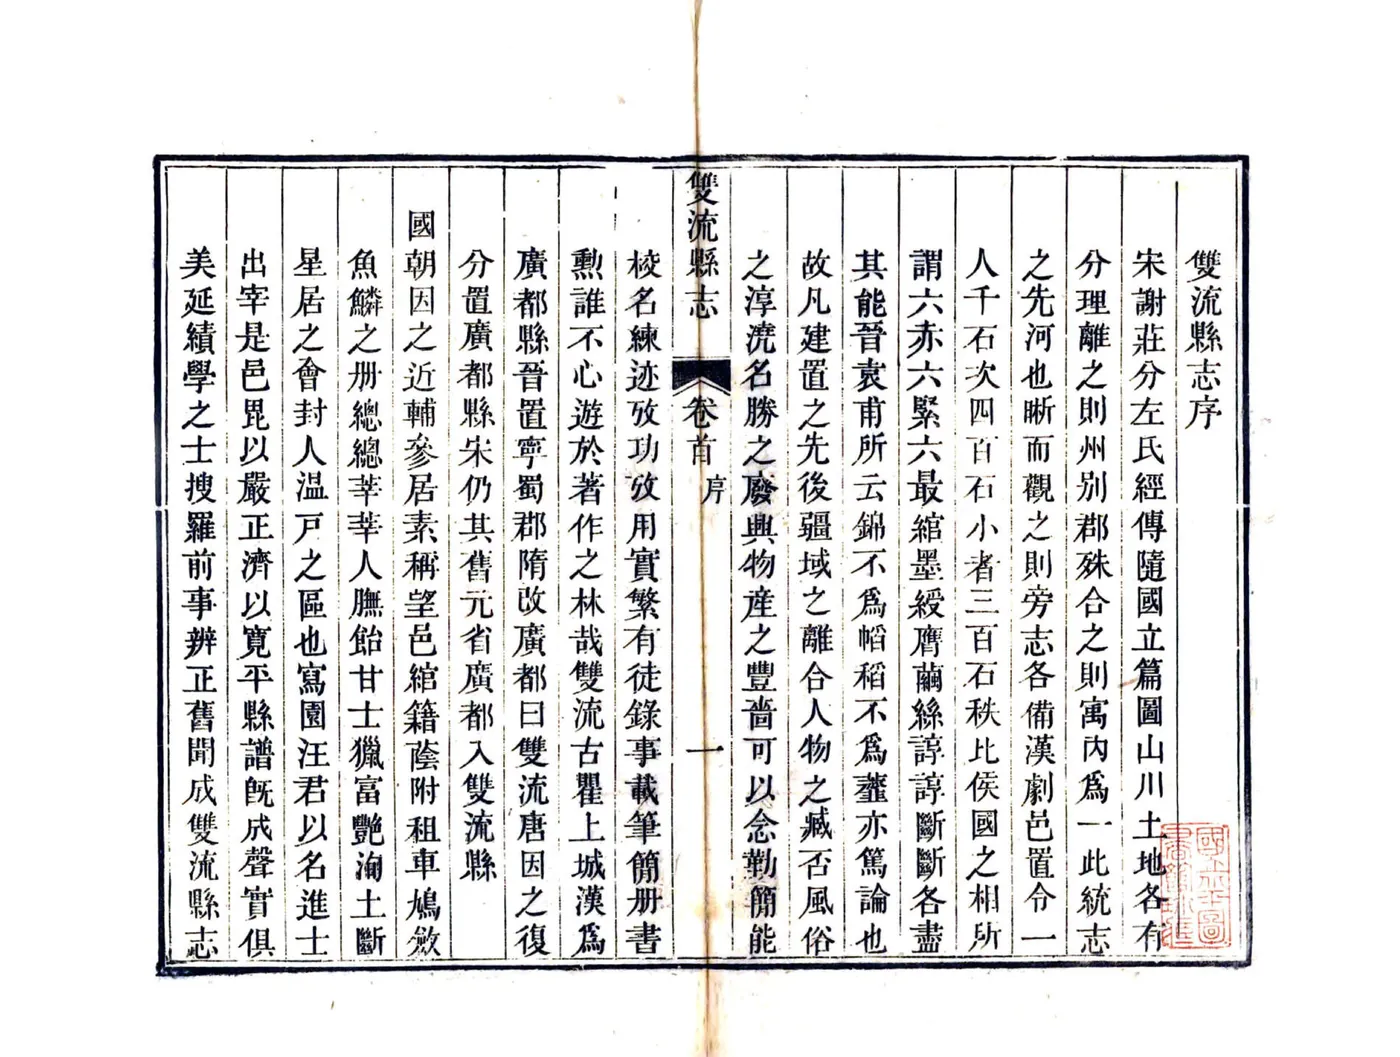 雙流縣志序
宋謝莊分左氏經傳隨國立篇圖山川土地各有
分理離之則州別郡殊合之則寓內爲一此統志
之先河也晰而觀之則旁志各備漢劇邑置令一
人千石次四百石小者三百石秩比侯國之相所
謂六赤六緊六最綰墨綬膺繭絲諄諄斷斷各盡
其能晉袁甫所云錦不爲幍稻不爲虀亦篤論也
故凡建置之先後疆域之離合人物之臧否風俗
之淳澆名勝之廢興物産之豐嗇可以念勤簡能
雙流縣志
卷首
序
一
棱名練迹攷功攷用實繁有徒錄事載筆簡册書
勳誰不心遊於著作之林哉雙流古瞿上城漢爲
廣都縣晉置寧蜀郡隋改廣都曰雙流唐因之復
分置廣都縣宋仍其舊元省廣都入雙流縣
國朝因之近輔參居素稱望邑綰籍蔭附租車鳩斂
魚鱗之册總總莘莘人膴飴甘士獵富艷洵土斷
星居之會封人温戸之區也寫園汪君以名進士
出宰是邑毘以嚴正濟以寬平縣譜旣成聲實俱
美延績學之士搜羅前事辨正舊聞成雙流縣志